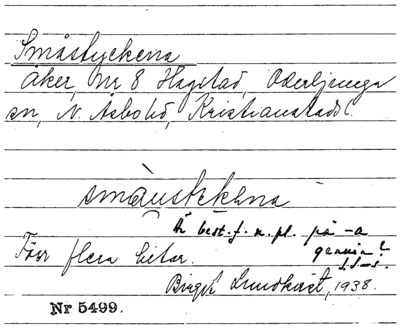 Småstyckena
åker, nr 8 Hagstad, Oderljunga
sn, N. Åsbo hd, Kristianstads l.
småustekena
Är best. f. n. pl. på -a
genuin?
Förr flera bitar.
Birgit Lundkvist, 1938.
Nr 5499.